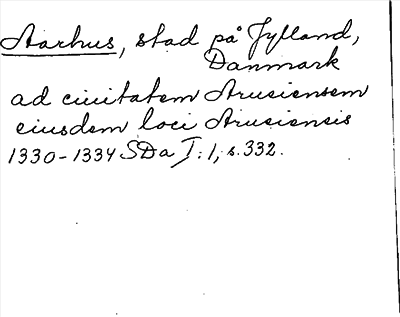 Aarhus, stad på Jylland,
Danmark
ad ciuitatem Arusiensem
eiusdem loci Arusiensis
1330-1334 SDa I:1, s. 332.